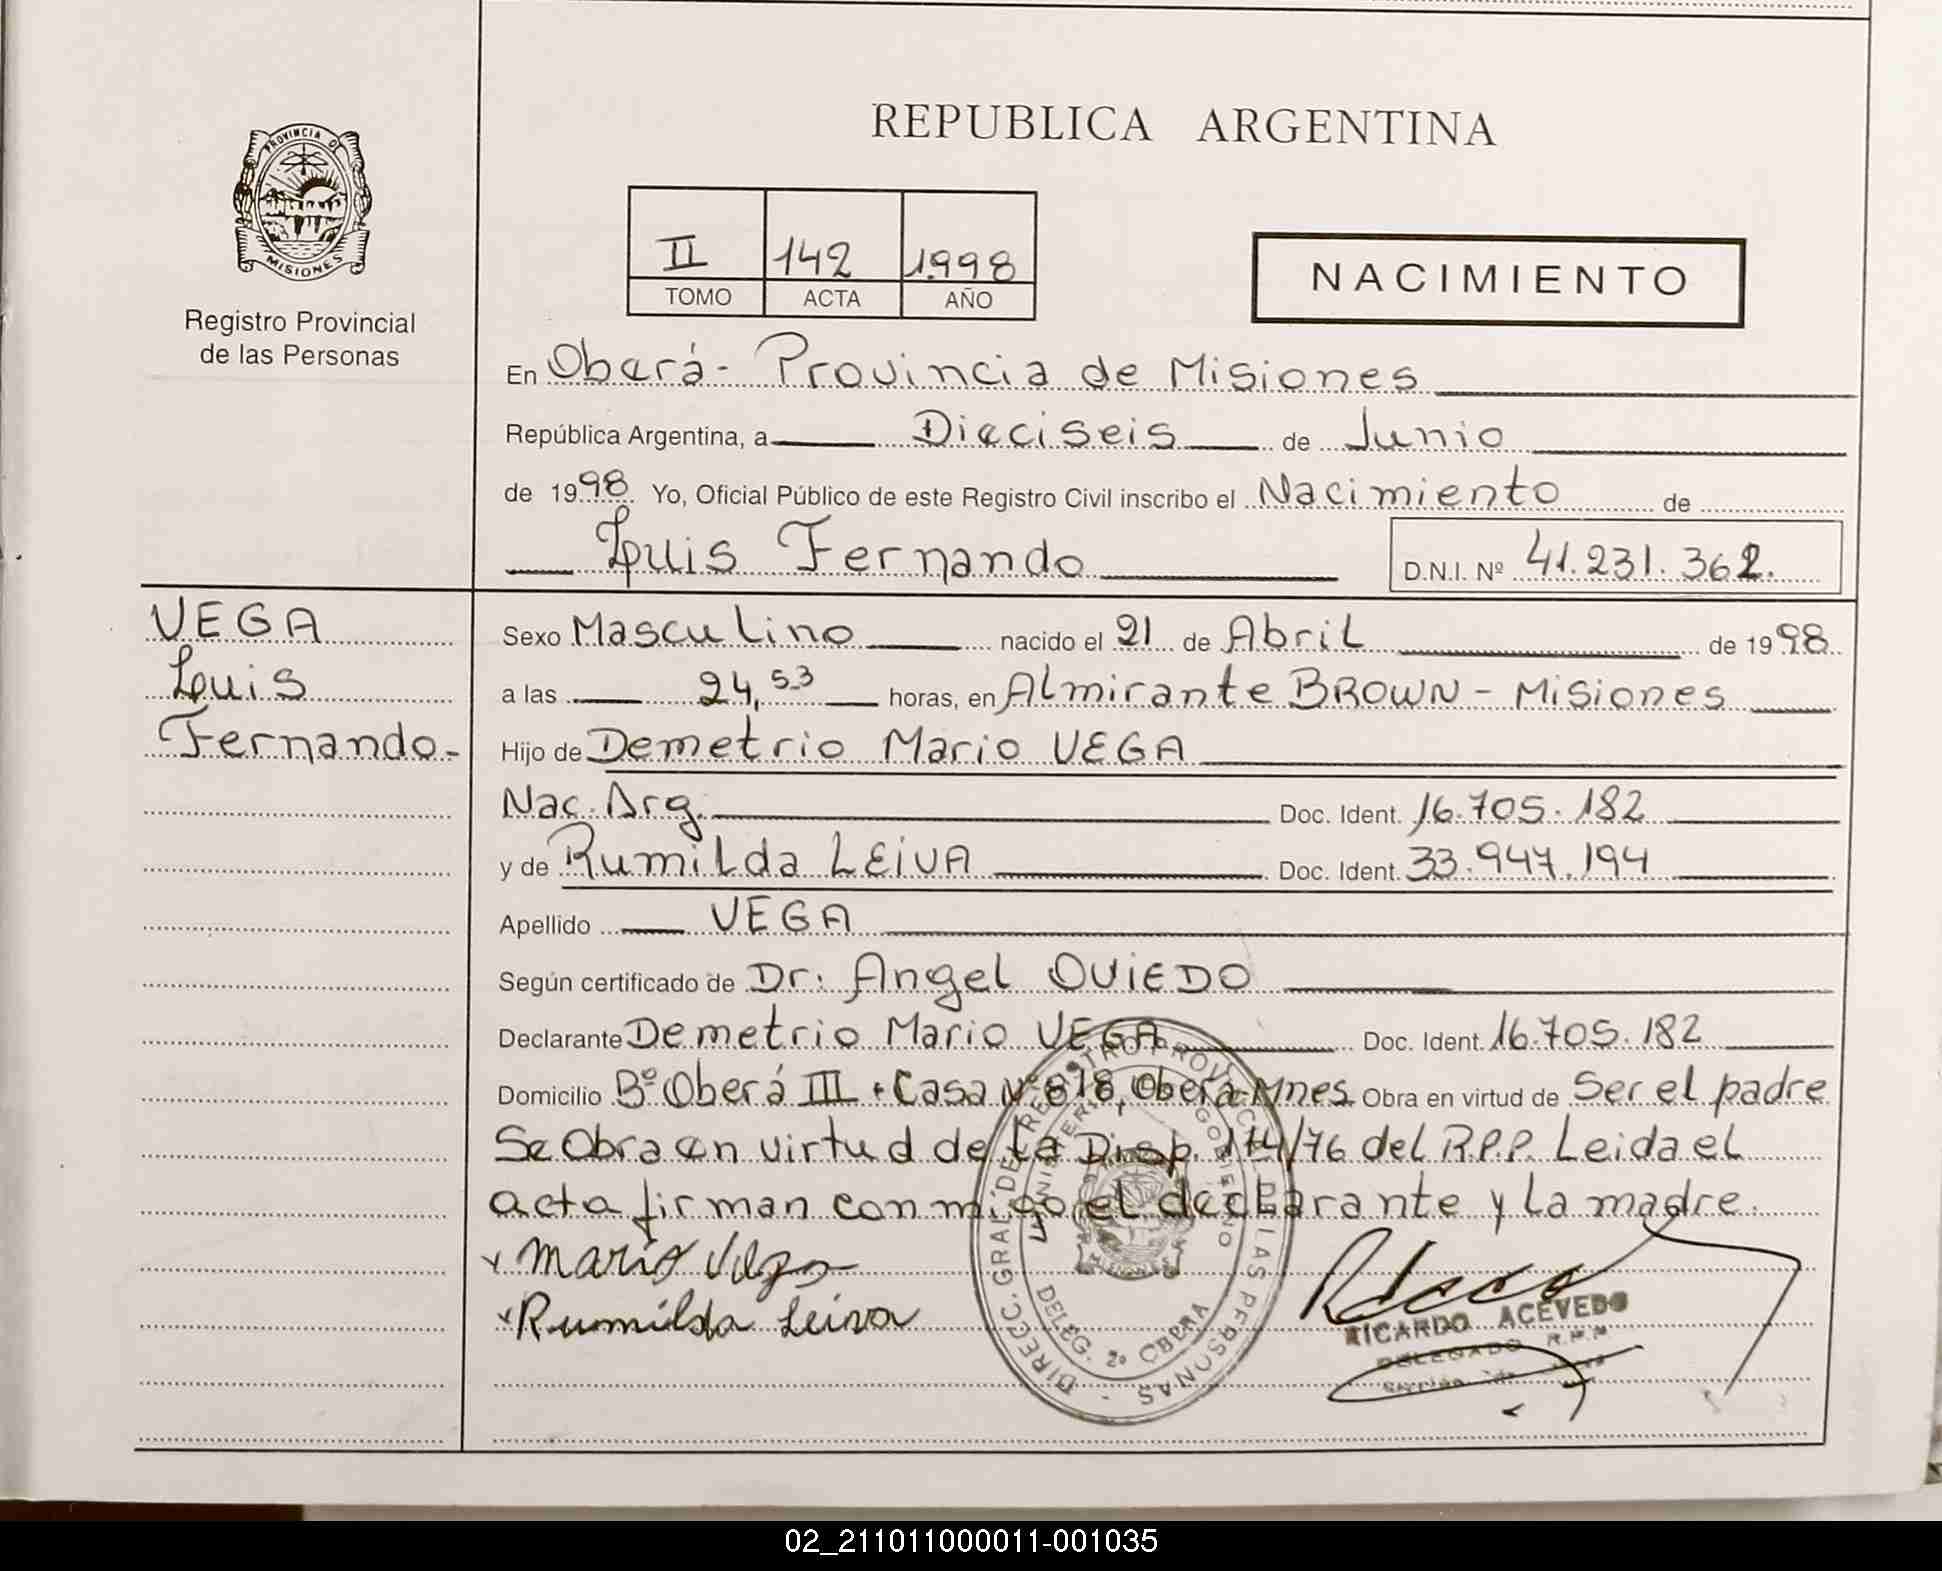 REPUBLICA ARGENTINA
PROVINCIA D
MISIONES
Registro Provincial
de las Personas
II 142 1998
TOMO ACTA AÑO
NACIMIENTO
En Oberá - Provincia de Misiones
República Argentina, a Dieciseis de Junio
de 1998 Yo, Oficial Público de este Registro Civil inscribo el Nacimiento de
Luis Fernando D.N.I. Nº 41.231.362.
VEGA
Luis
Fernando.-
Sexo Masculino nacido el 21 de Abril de 1998
a las 24,53 horas, en Almirante BROWN - Misiones
Hijo de Demetrio Mario VEGA
Nac. Arg. Doc. Ident. 16.705.182
y de Rumilda LEIVA Doc. Ident. 33.947.194
Apellido VEGA
Según certificado de Dr. Angel OVIEDO
Declarante Demetrio Mario VEGA Doc. Ident. 16.705.182
Domicilio Bº Oberá III - Casa Nº 818, Oberá-Mnes Obra en virtud de Ser el padre
Se Obra en virtud de la Disp. 114/76 del R.P.P. Leida el
acta firman conmigo el declarante y la madre.
x Mario Vega
x Rumilda Leiva
DIRECC. GRAL. DE REGISTRO PROVINCIAL DE LAS PERSONAS
MINISTERIO DE GOBIERNO
DELEG. 2º OBERA
RICARDO ACEVEDO
DELEGADO
02_211011000011-001035